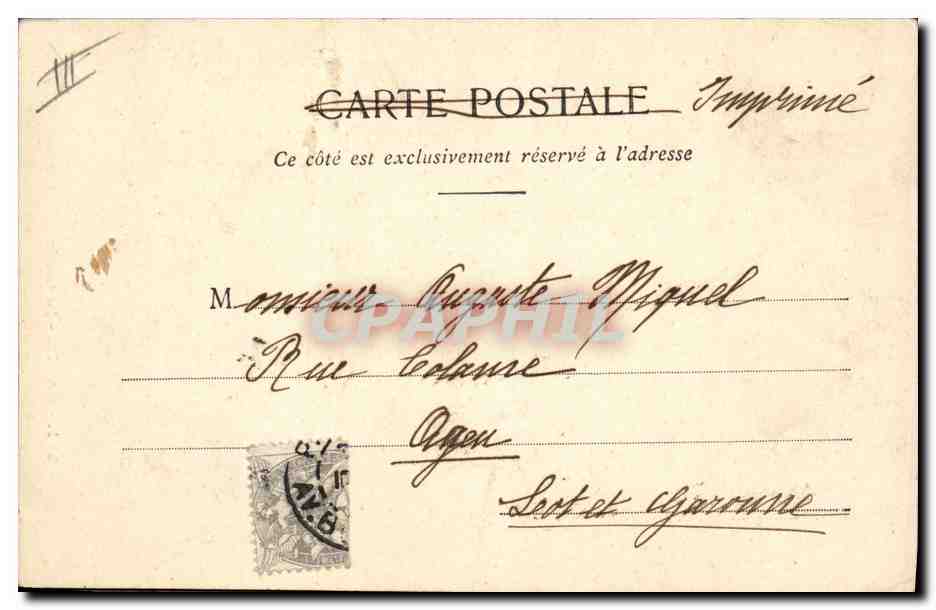 III
CARTE POSTALE Imprimé
Ce côté est exclusivement réservé à l'adresse
Monsieur Auguste Miquel
CPAPHIL
Rue
Agen
Lot et Garonne
AV.B